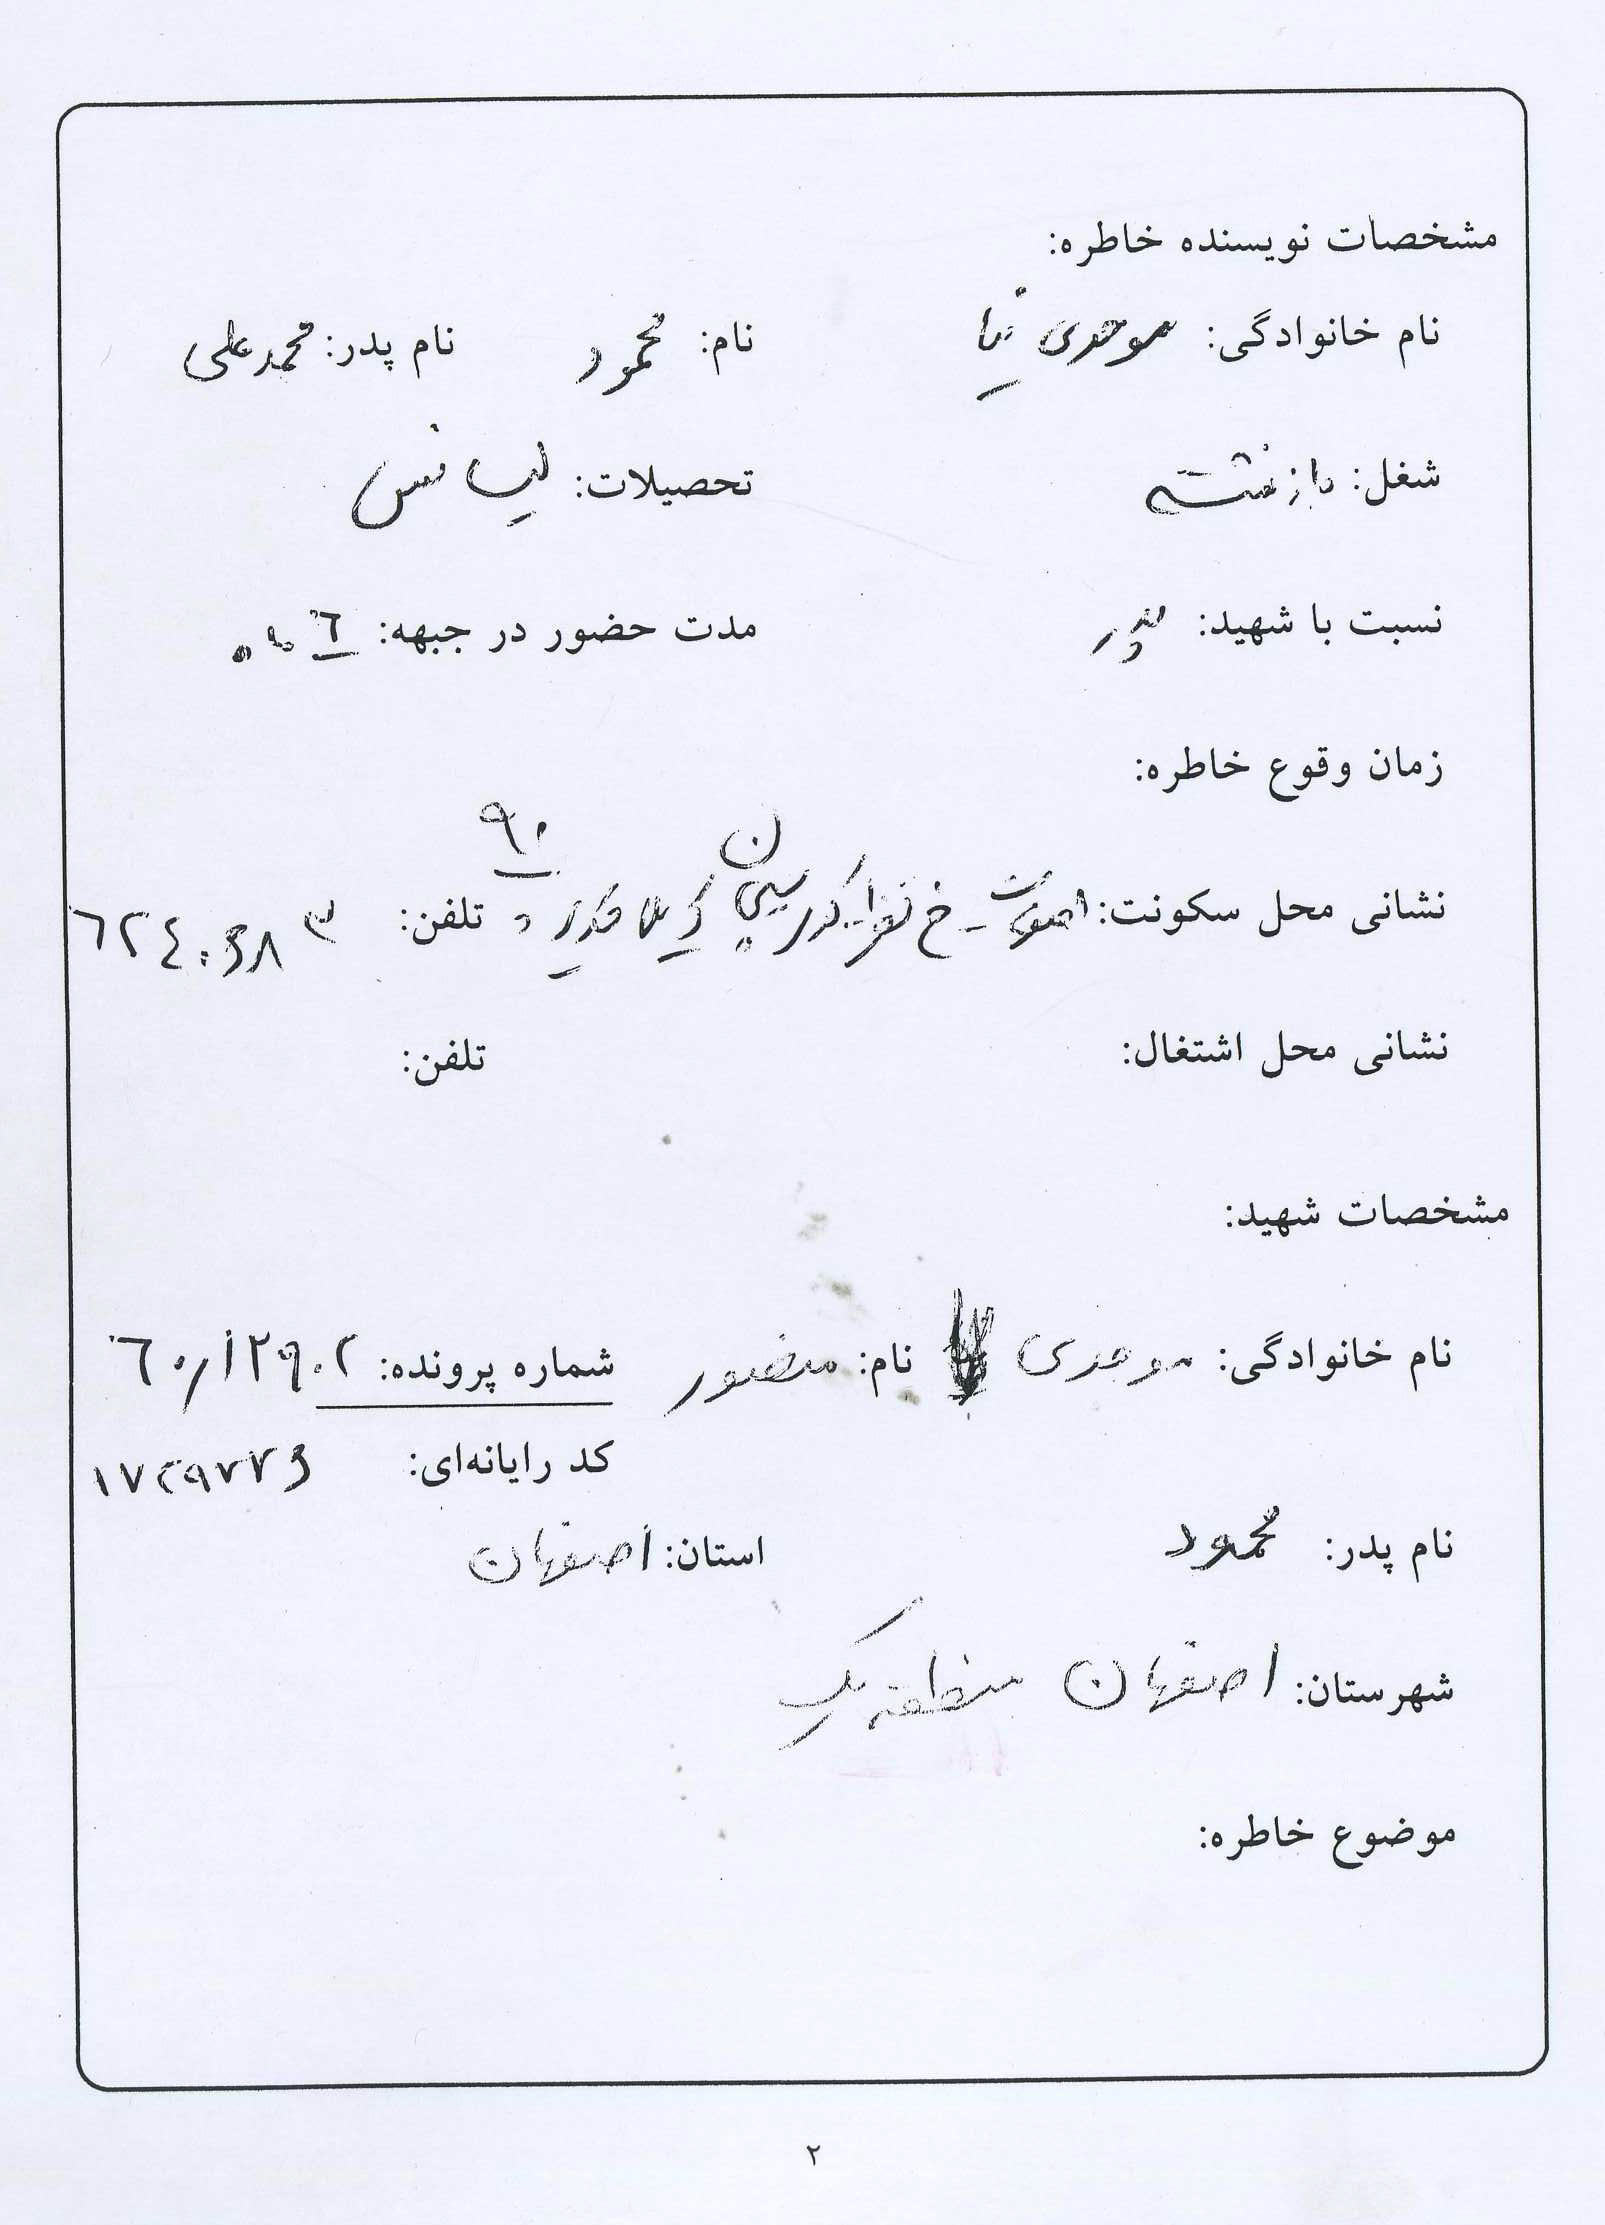 مشخصات نویسنده خاطره:
نام خانوادگی: موحدی نیا نام: محمود نام پدر: محمدعلی
شغل: بازنشسته تحصیلات: لیسانس
نسبت با شهید: پدر مدت حضور در جبهه: ٦ ماه
زمان وقوع خاطره:
نشانی محل سکونت: اصفهان - خ پلاک ۹۰ تلفن:
نشانی محل اشتغال: تلفن:
مشخصات شهید:
نام خانوادگی: موحدی نام: منصور شماره پرونده:
کد رایانه‌ای:
نام پدر: محمود استان: اصفهان
شهرستان: اصفهان منطقه یک
موضوع خاطره:
۲